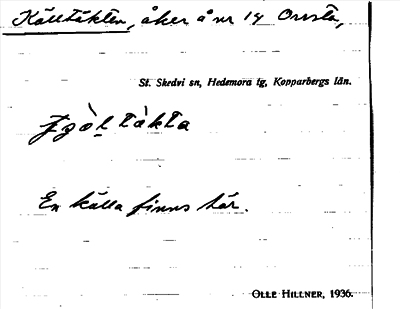 Källtäkten, åker å nr 14 Onsta,
St. Skedvi sn, Hedemora tg, Kopparbergs län.
En källa finns här.
OLLE HILLNER, 1936.